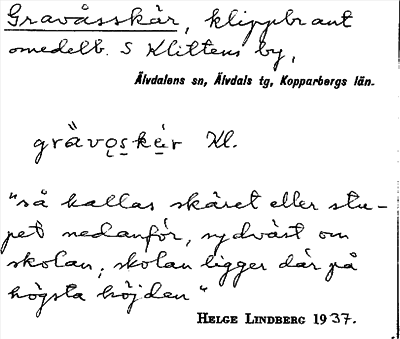 Gravåsskär, klippbrant
omedelb. S Klittens by,
Älvdalens sn, Älvdals tg, Kopparbergs län.
grä̀vo̜s̱kè̱r Kl.
"så kallas skäret eller stu-
pet nedanför, sydväst om
skolan; skolan ligger där på
högsta höjden"
HELGE LINDBERG 1937.